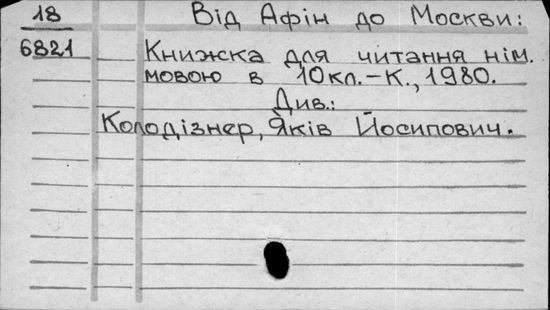 18 Від Афін до Москви:
6821 Книжка для читання нім.
мовою в 10кл.-К., 1980.
Див.:
Колодізнер, Яків Йосипович.